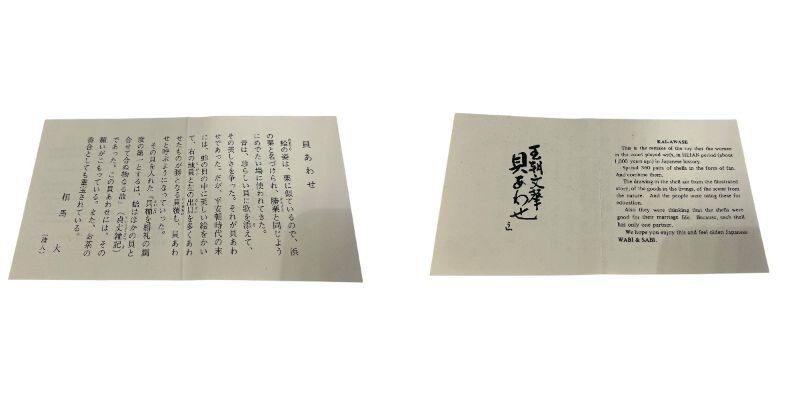 貝あわせ
蛤の姿は、栗に似ているので、浜
の栗と名づけられ、勝栗と同じよう
にめでたい場に使われてきた。
昔は、珍らしい貝に歌を添えて、
その美しさを争った。それが貝あわ
せであった。だが、平安朝時代の末
には、蛤の貝の中に美しい絵をかい
て、右の地貝と左の出貝を多くあわ
せたものが勝となる貝覆も、貝あわ
せと呼ぶようになっていった。
その貝を入れた『貝桶を婚礼の調
度の第一とするは、蛤はほかの貝と
合せて合ぬ物なる故』(貞丈雑記)
であった。この貝あわせには、その
願いがこもっている。また、お茶の
香合としても重宝されている。
相馬 大
(詩人)
王朝文華
貝あわせ
KAI-AWASE
This is the remake of the toy that the women
in the court played with, in HEIAN period (about
1,000 years ago) in Japanese history.
Spread 360 pairs of shells in the form of fan.
And combine them.
The drawing in the shell are from the illustrated
story, of the goods in the livings, of the scene from
the nature. And the people were using these for
education.
Also they were thinking that the shells were
good for their marriage life. Because, each shell
has only one partner.
We hope you enjoy this and feel olden Japanese
WABI & SABI.